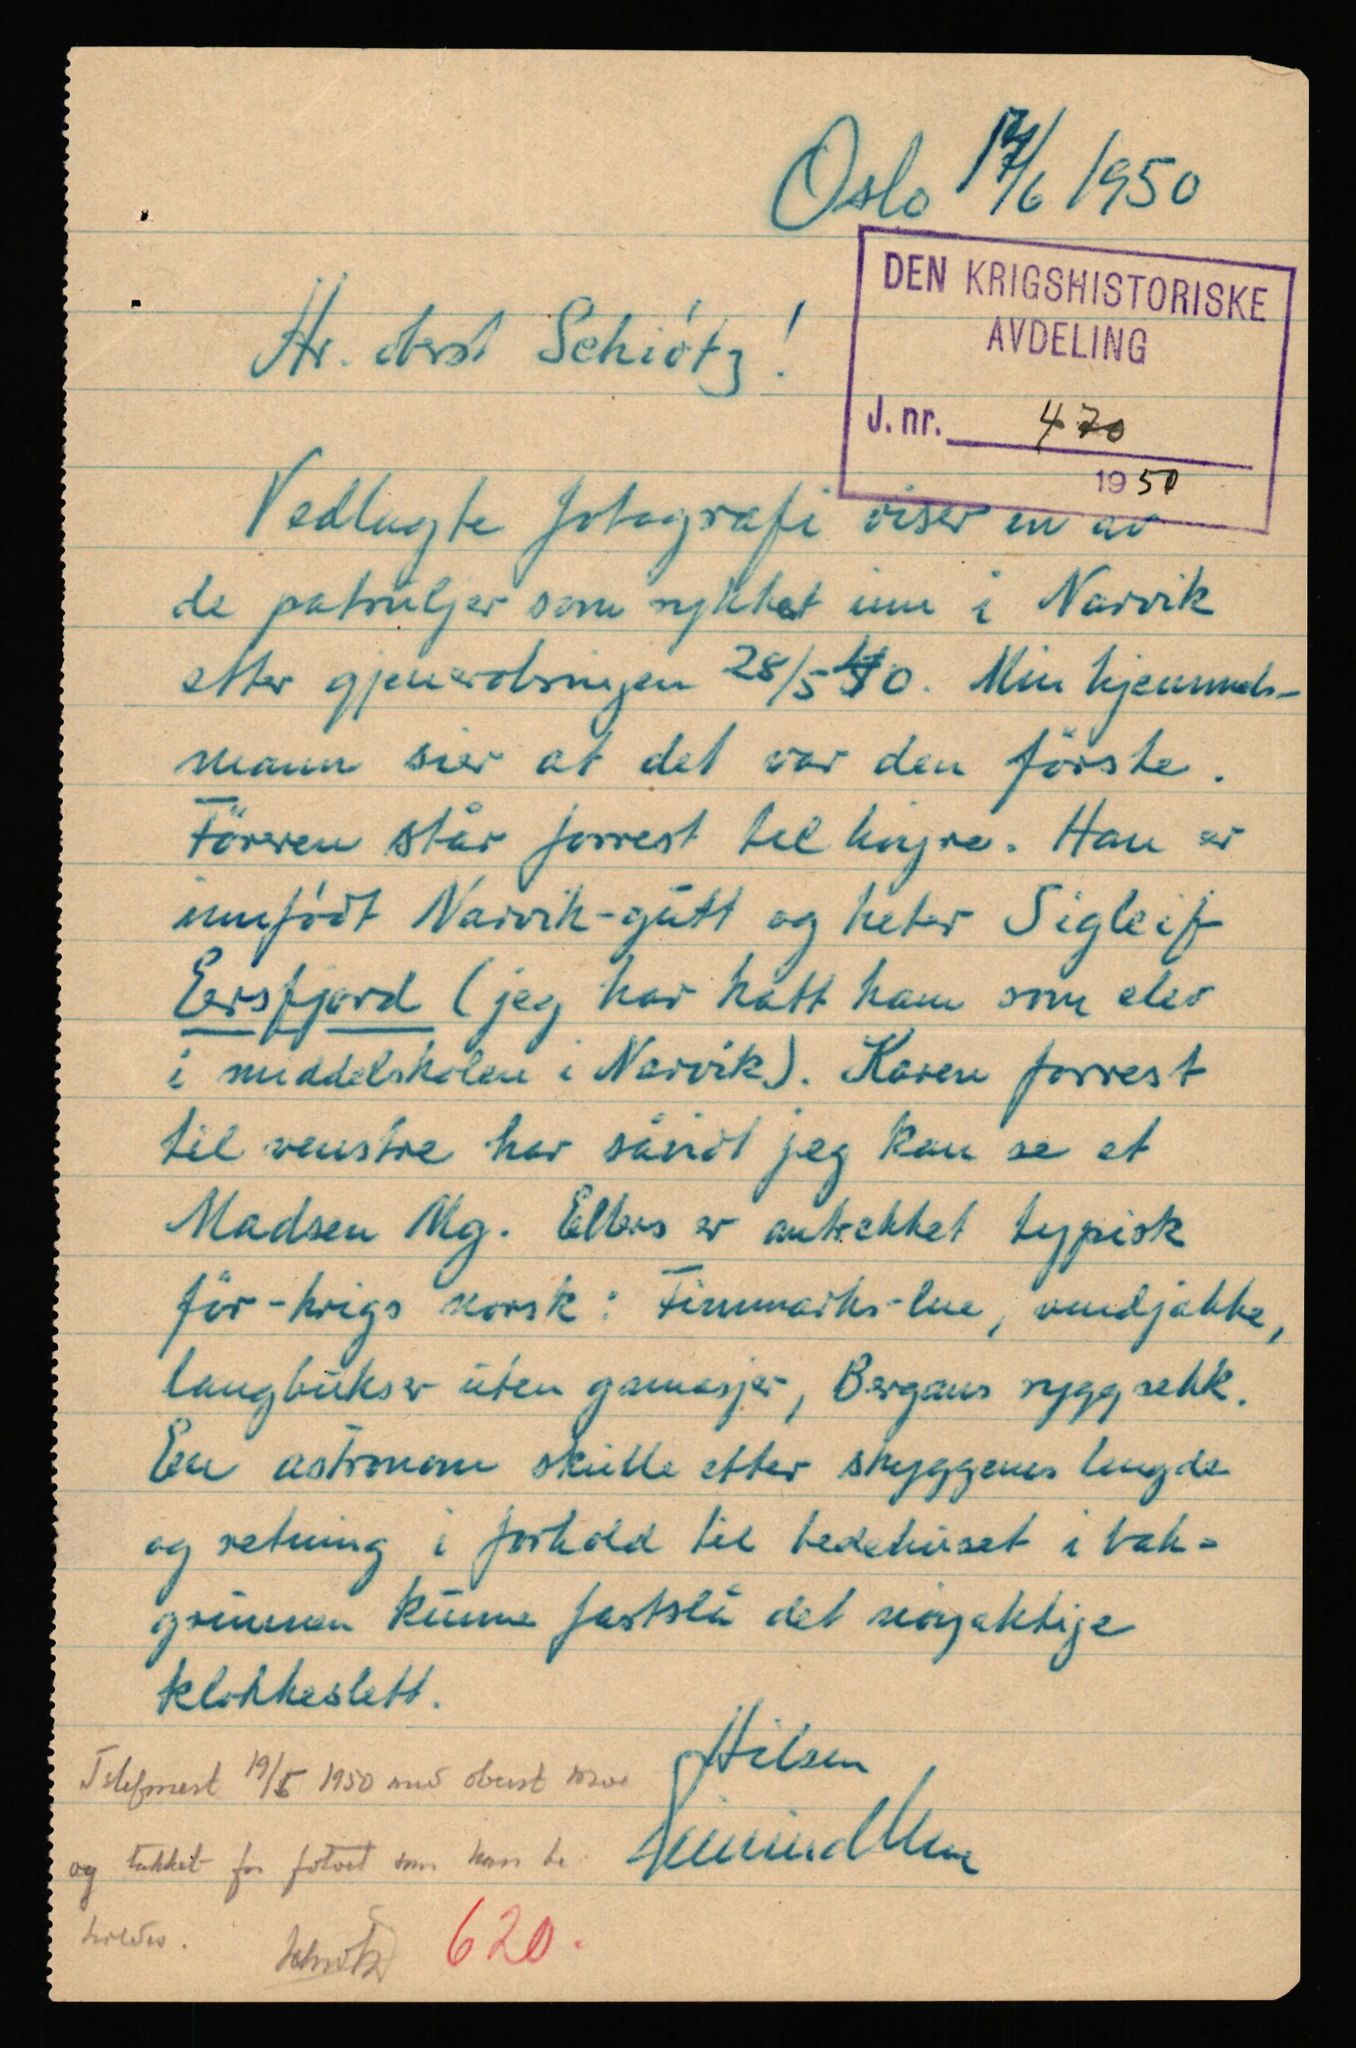 Oslo 17/6 1950
DEN KRIGSHISTORISKE
AVDELING
J. nr. 470
1950
Hr. oberst Schiötz!
Vedlagte fotografi viser en av
de patruljer som rykket inn i Narvik
etter gjenerobringen 28/5 40. Min hjemmels-
mann sier at det var den förste.
Föreren står forrest til höyre. Han er
innfödt Narvik-gutt og heter Sigleif
Eersfjord (jeg har hatt ham som elev
i middelskolen i Narvik). Karen forrest
til venstre har såvidt jeg kan se et
Madsen Mg. Ellers er antrekket typisk
för-krigs norsk: Finnmarks-lue, vindjakke,
langbukser uten gamasjer, Bergans ryggsekk.
En astronom skulle etter skyggenes lengde
og retning i forhold til bedehuset i bak-
grunnen kunne fastslå det nöyaktige
klokkeslett.
Hilsen
Telefonert 19/6 1950 med oberst
og takket for fotoet som kan be
holdes.
Schiötz
620.